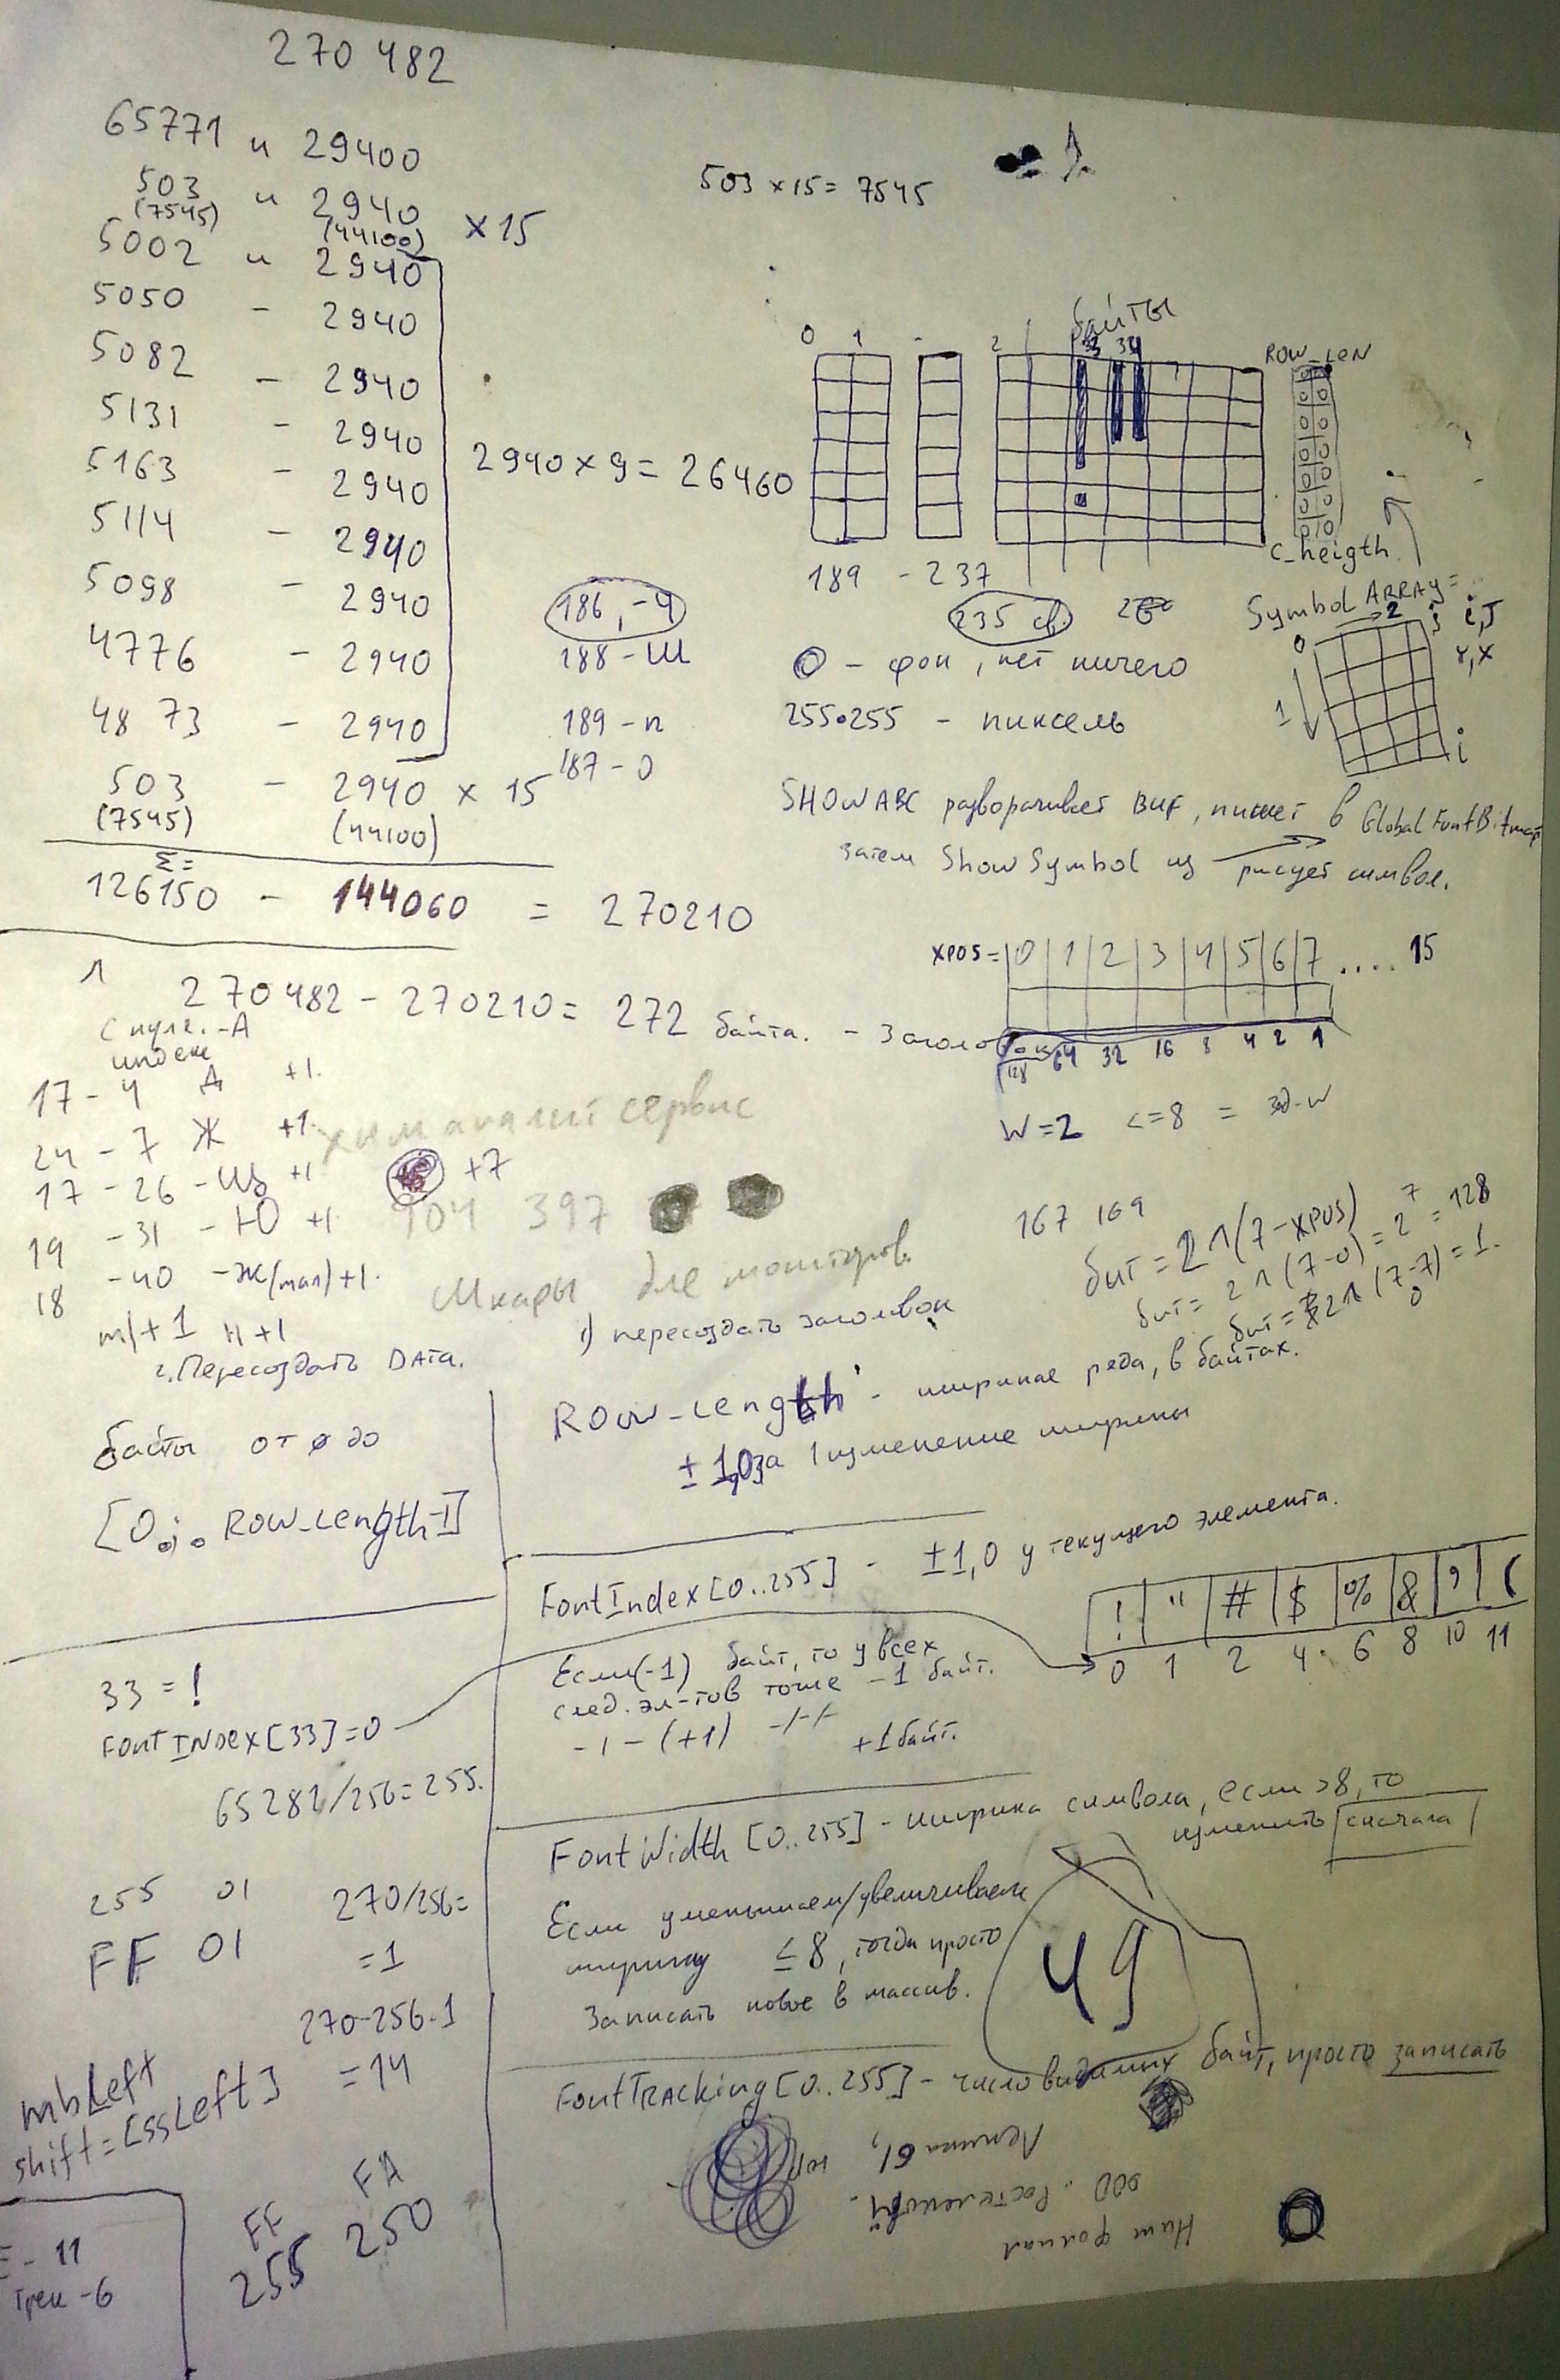 270 482
65771 и 29400
503 и 2940 × 15
(7545) (44100)
5002 и 2940
5050 - 2940
5082 - 2940
5131 - 2940
5163 - 2940
5114 - 2940
5098 - 2940
4776 - 2940
4873 - 2940
503 - 2940 × 15
(7545) (44100)
Σ=
126150 - 144060 = 270210
2940 × 9 = 26460
503 × 15 = 7545
1
270482 - 270210 = 272 байта. - Заголовок
байты
0 1 - 2
ROW_LEN
C_heigth
189 - 237
186, -4
235
188 - Ш
189 - п
187 - о
0 - фон, нет ничего
255 255 - пиксель
Symbol ARRAY =
0 2 j i,J
Y,X
1 i
SHOWABC разворачивает BUF, пишет в GlobalFontBitmap
затем ShowSymbol из рисует символ.
XPOS = 0 1 2 3 4 5 6 7 .... 15
128 64 32 16 8 4 2 1
W=2 <=8 =
с нуля. - А
индекс
17 - 4 Д +1.
24 - 7 Ж +1.
17 - 26 - Щ +1
19 - 31 - Ю +1
18 - 40 - Ж(мал) +1.
+7
химаналитсервис
904 397
Шкафы для мониторов.
167 169
бит = 2^(7-XPOS)
бит = 2^(7-0) = 2^7 = 128
бит = 2^(7-7) = 1.
0
1) пересоздать заголовок
2. Пересоздать DATA.
Row_Length - ширина ряда, в байтах.
± 1,0 за 1 изменение ширины
байты от 0 до
[0... Row_Length-1]
FontIndex [0..255] - ±1,0 у текущего элемента.
Если (-1) байт, то у всех
след. эл-тов тоже -1 байт.
- 1 - (+1) -/-/- +1 байт.
! " # $ % & ' (
0 1 2 4 6 8 10 11
33 = !
FontIndex[33] = 0
65282/256 = 255.
255 01
FF 01
270/256=
=1
270-256·1
=14
FontWidth [0..255] - ширина символа, если >8, то
изменить сначала
Если уменьшаем/увеличиваем
ширину ≤ 8, тогда просто
записать новое в массив.
49
FontTracking [0..255] - число видимых байт, просто записать
mbLeft
shift = [ssLeft]
FF FA
255 250
- 11
трек - 6
Ленина 61,
ООО. Ростелеком.
Наш филиал